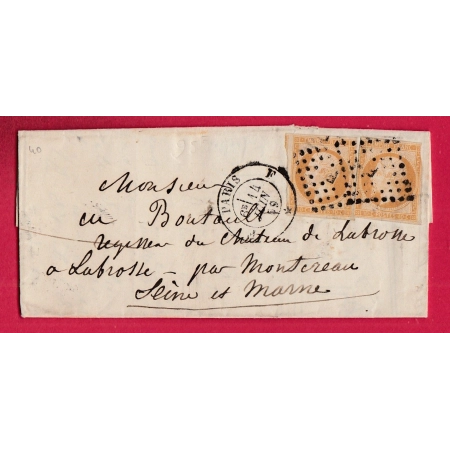 40
PARIS F
Monsieur
régisseur du Château de Labrosse
a Labrosse - par Montereau
Seine et Marne